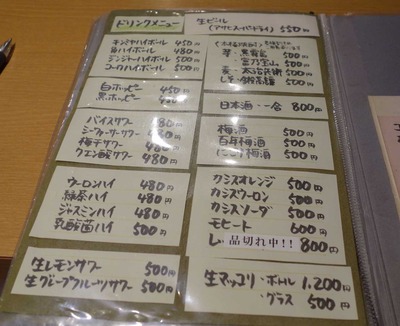 ドリンクメニュー
キンミヤハイボール 450円
角ハイボール 480円
ジンジャーハイボール 500円
コークハイボール 500円
白ホッピー 450円
黒ホッピー
バイスサワー 480円
シークァーサーサワー 480円
梅干サワー 480円
クエン酸サワー 480円
ウーロンハイ 480円
緑茶ハイ 480円
ジャスミンハイ 480円
乳酸菌ハイ 500円
生レモンサワー 500円
生グレープフルーツサワー 500円
生ビール
(アサヒスーパードライ) 550円
芋・黒霧島 500円
富乃宝山 500円
麦・太治兵衛 500円
しそ・鍛高譚 500円
日本酒・一合 800円
梅酒 500円
百年梅酒 500円
にごり梅酒 500円
カシスオレンジ 500円
カシスウーロン 500円
カシスソーダ 500円
モヒート 600円
品切れ中!! 800円
生マッコリ・ボトル 1,200円
・グラス 500円